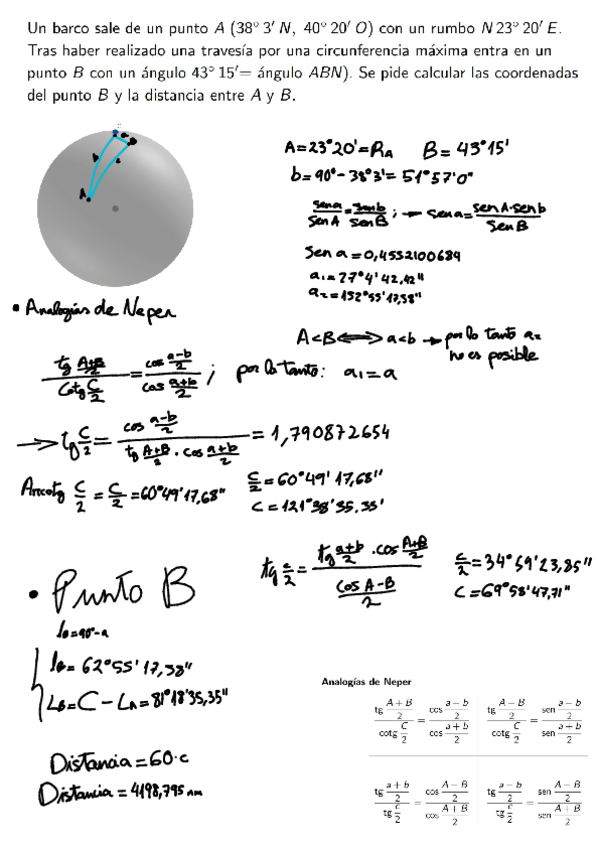 Un barco sale de un punto A (38° 3′ N, 40° 20′ O) con un rumbo N 23° 20′ E.
Tras haber realizado una travesía por una circunferencia máxima entra en un
punto B con un ángulo 43° 15′= ángulo ABN). Se pide calcular las coordenadas
del punto B y la distancia entre A y B.
A=23°20'=R_A B=43°15'
b=90°-38°3'=51°57'0"
sen a/sen A = sen b/sen B ; → sen a = sen A·sen b/sen B
Sen a=0,4552100684
a₁=27°4'42,42"
a₂=152°55'17,58"
A
b
• Analogías de Neper
A<B ⟺ a<b → por lo tanto a₂ no es posible
tg (A+B)/2 / Cotg C/2 = cos (a-b)/2 / cos (a+b)/2 ; por lo tanto: a₁=a
→ tg C/2 = cos (a-b)/2 / tg (A+B)/2 · cos (a+b)/2 = 1,790872654
Arccotg C/2 = C/2 = 60°49'17,68" C/2=60°49'17,68"
C=121°38'35.35'
tg c/2 = tg (a+b)/2 · cos (A+B)/2 / cos (A-B)/2 c/2=34°59'23,85"
C=69°58'47,71"
• Punto B
l_B=90°-a
l_B=62°55'17,38"
L_B=C-L_A=81°18'35,35"
Distancia=60·c
Distancia=4198,795 nm
Analogías de Neper
tg (A+B)/2 / cotg C/2 = cos (a−b)/2 / cos (a+b)/2 tg (A−B)/2 / cotg C/2 = sen (a−b)/2 / sen (a+b)/2
tg (a+b)/2 / tg c/2 = cos (A−B)/2 / cos (A+B)/2 tg (a−b)/2 / tg c/2 = sen (A−B)/2 / sen (A+B)/2